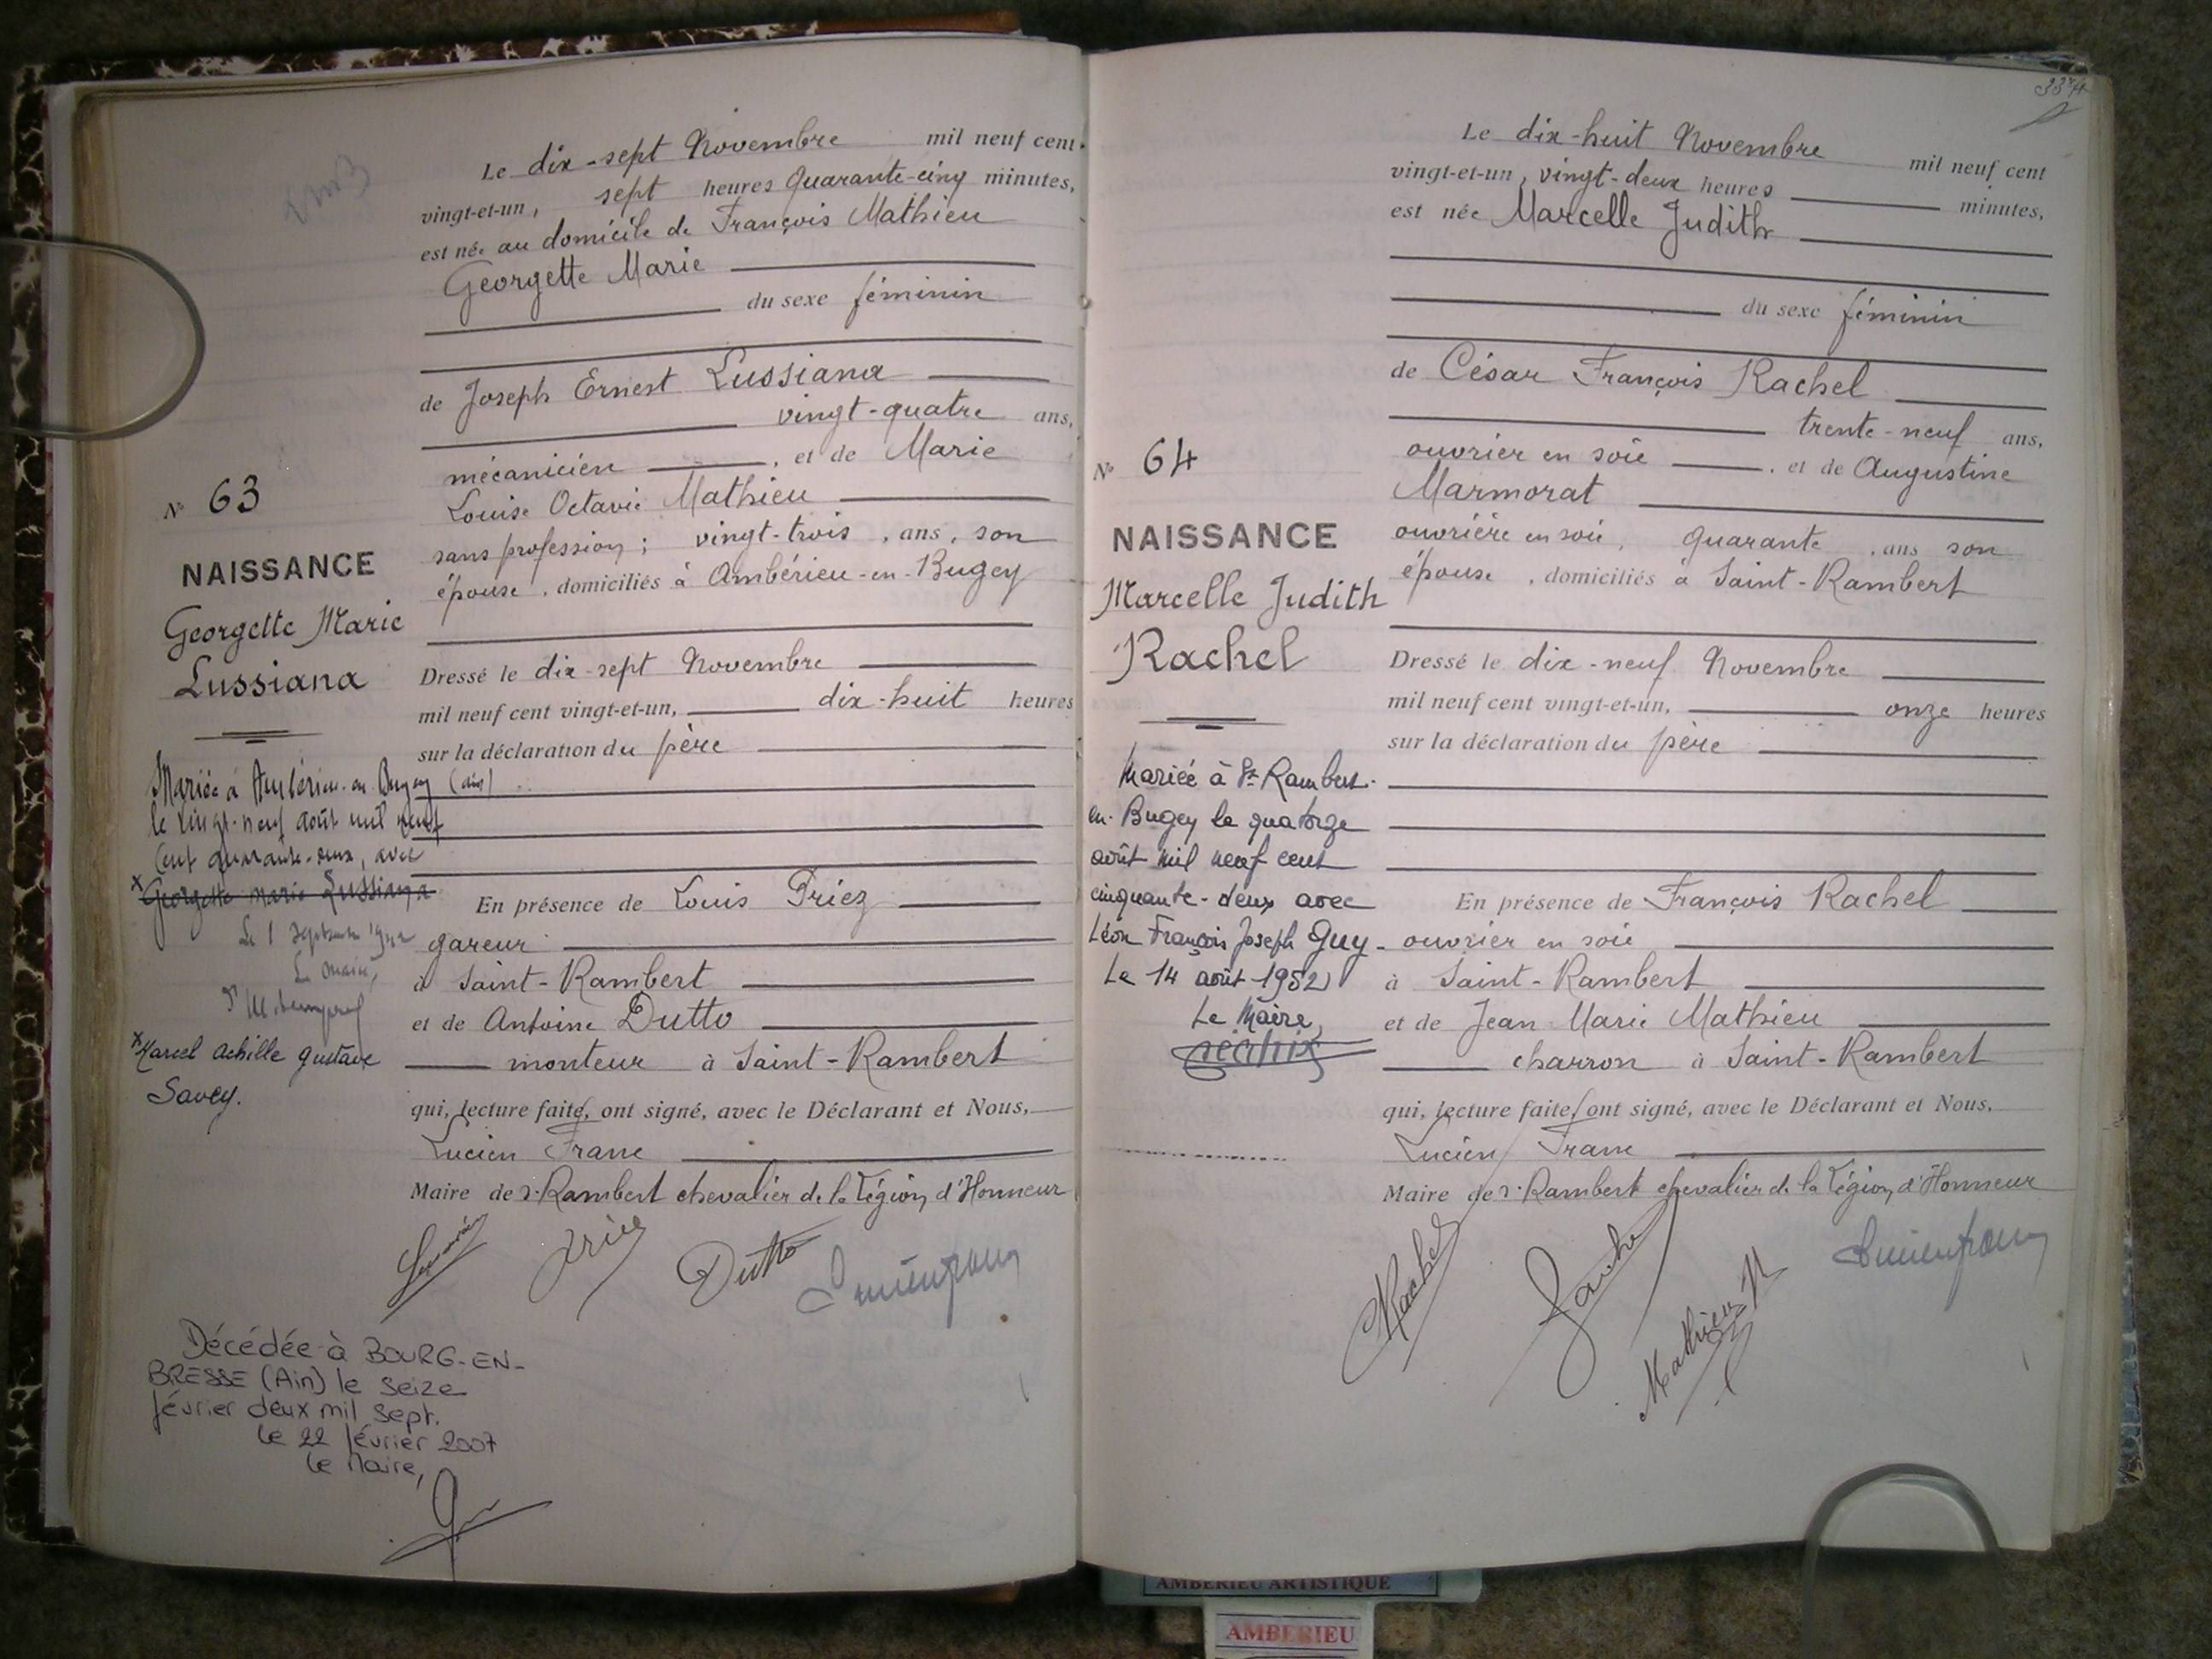 Le dix-sept Novembre mil neuf cent
vingt-et-un, sept heures quarante-cinq minutes,
est née au domicile de François Mathieu
Georgette Marie
du sexe féminin
de Joseph Ernest Lussiana
vingt-quatre ans,
mécanicien, et de Marie
Louise Octavie Mathieu
sans profession; vingt-trois, ans, son
épouse, domiciliés à Ambérieu-en-Bugey
Dressé le dix-sept Novembre
mil neuf cent vingt-et-un, dix-huit heures
sur la déclaration du père
En présence de Louis Priez
gareur
à Saint-Rambert
et de Antoine Dutto
monteur à Saint-Rambert
qui, lecture faite, ont signé, avec le Déclarant et Nous,
Lucien Franc
Maire de St Rambert chevalier de la Légion d'Honneur
Dutto
N° 63
NAISSANCE
Georgette Marie
Lussiana
Mariée à Ambérieu-en-Bugey (Ain)
le vingt-neuf août mil neuf
cent quarante-deux, avec
x Georgette Marie Lussiana
Le 1 septembre 1942
Le maire,
x Marcel Achille Gustave
Savey.
Décédée à BOURG-EN-
BRESSE (Ain) le seize
février deux mil sept.
le 22 février 2007
le Maire,
Le dix-huit Novembre mil neuf cent
vingt-et-un, vingt-deux heures minutes,
est née Marcelle Judith
du sexe féminin
de César François Rachel
trente-neuf ans,
ouvrier en soie, et de Augustine
Marmorat
ouvrière en soie, quarante, ans son
épouse, domiciliés à Saint-Rambert
Dressé le dix-neuf Novembre
mil neuf cent vingt-et-un, onze heures
sur la déclaration du père
En présence de François Rachel
ouvrier en soie
à Saint-Rambert
et de Jean Marie Mathieu
charron à Saint-Rambert
qui, lecture faite, ont signé, avec le Déclarant et Nous,
Lucien Franc
Maire de St Rambert chevalier de la Légion d'Honneur
Rachel
Mathieu
N° 64
NAISSANCE
Marcelle Judith
Rachel
Mariée à St Rambert-
en-Bugey le quatorze
août mil neuf cent
cinquante-deux avec
Léon François Joseph Guy-
Le 14 août 1952
Le Maire,
AMBERIEU ARTISTIQUE
AMBERIEU